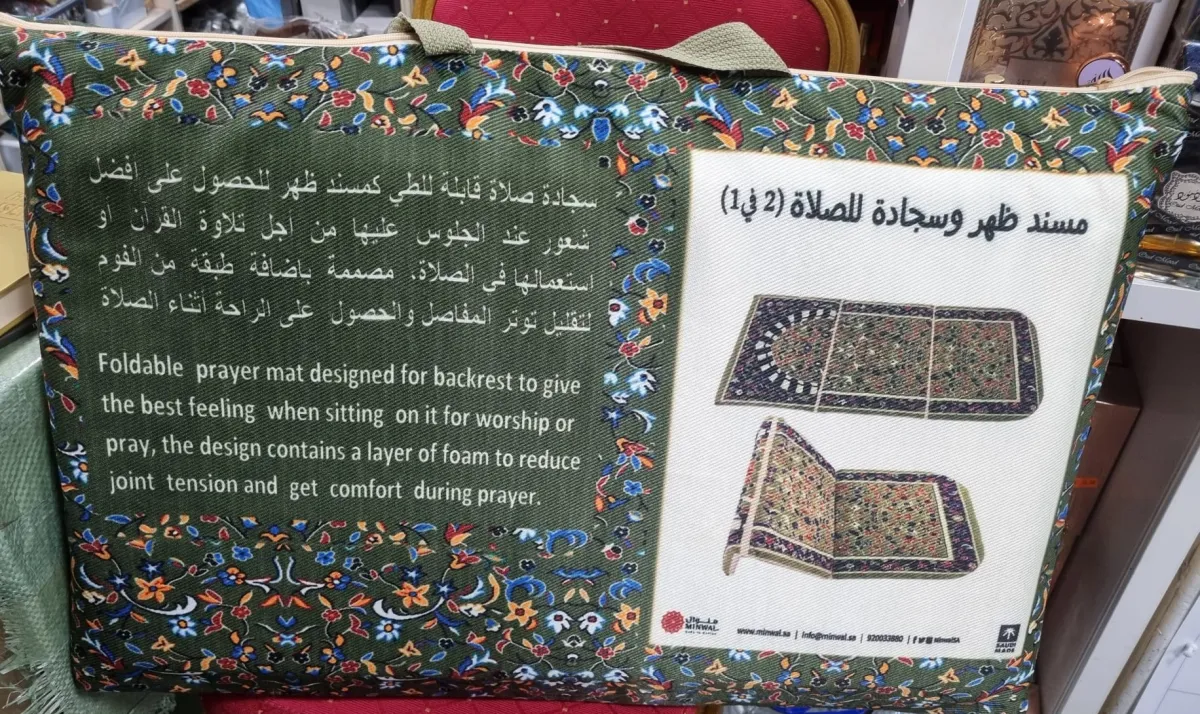 سجادة صلاة قابلة للطي كمسند ظهر للحصول على افضل
شعور عند الجلوس عليها من اجل تلاوة القرآن او
استعمالها في الصلاة. مصممة بإضافة طبقة من الفوم
لتقليل توتر المفاصل والحصول على الراحة أثناء الصلاة
Foldable prayer mat designed for backrest to give
the best feeling when sitting on it for worship or
pray, the design contains a layer of foam to reduce
joint tension and get comfort during prayer.
مسند ظهر وسجادة للصلاة (2 في 1)
منوال
MINWAL
www.minwal.sa | info@minwal.sa | 920033880 | MinwalSA
SAUDI
MADE